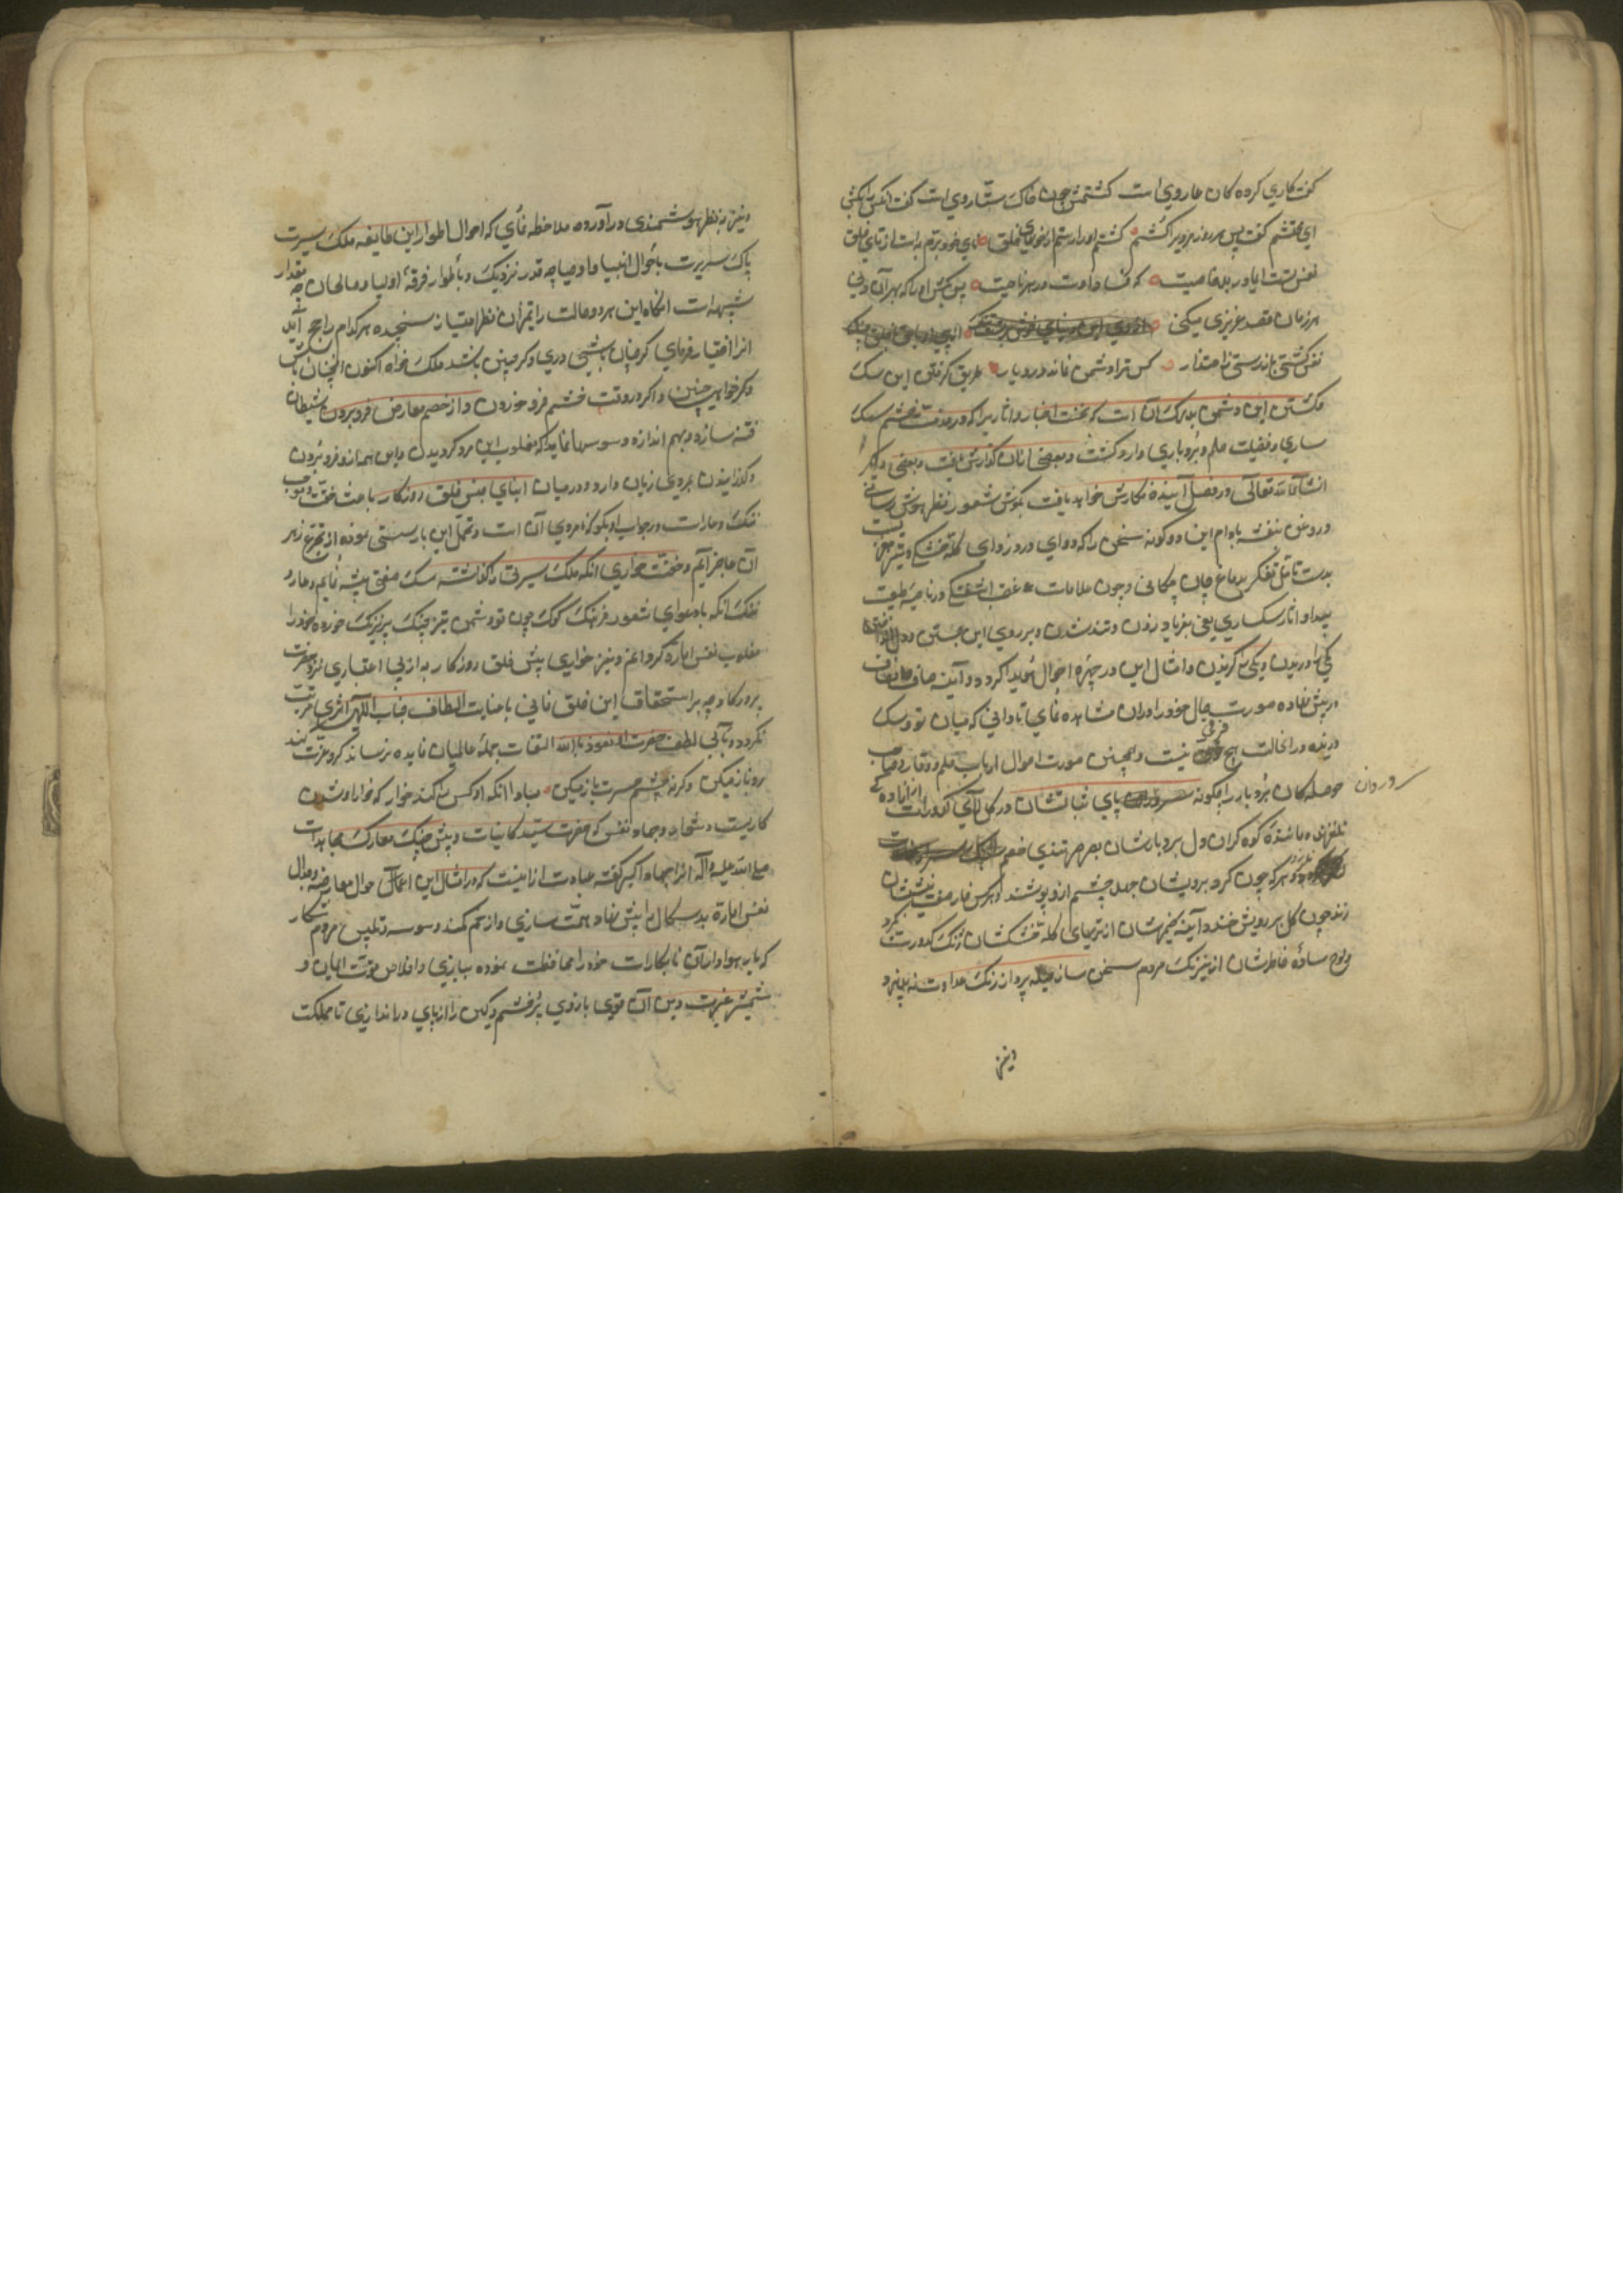 گفت کاری کرده کان عار وی است کشتمش چون خاک ستار وی است گفت آنکس را بکش
ای محتشم گفت پس هر روز مردیرا کشم کشتم او را رستم از خونهای خلق نای خود برم به است از نای خلق
نفس تست آن مادر بد خاصیت که فساد اوست در هر ناحیت پس بکش او را که بهر آن دنی
هر زمان قصد عزیزی میکنی
نفس کشتی باز رستی ز اعتذار کس ترا دشمن نماند در دیار طریق گرفتن این سگ
و کشتن این دشمن بدرگ آن است که نخست اخبار و آثار یرا که در مذمت خشم سبک
ساری و فضیلت حلم و بردباری وارد گشته و بعضی از آن گذارش یافت و بعضی دیگر
انشاء الله تعالی در فصل آینده نگارش خواهد یافت بگوش شعور و نظر هوش رسانی
و روغن بنفشه بادام این دو گونه سخن را که دوای درد زدای کله خشکی و تیز مغزیست
بدست تأمل و تفکر بدماغ جان چکانی و چون علامات غضب در ناحیه طبعت
پیدا و آثار سگساری یعنی بفریاد زدن و تند شدن و بر روی این جستن و دل
یکی را دریدن و یکی را گزیدن و امثال این در چهره احوال هویدا گردد آینه صاف انصاف
در پیش نهاده صورت حال خود را در آن مشاهده نمای تا دانی که میان تو و سگ
درنده در آنحالت هیچ فرقی نیست و همچنین صورت احوال ارباب حلم و وقار و صاحب
حوصلگان بردبار را چگونه پای ثباتشان در گل لای کدورات
سرو روان
نلغزیده باشد و کوه گران دل بردبارشان بصرصر تندی خصم
هر که چون گرد بر رویشان جهد چشم ازو پوشند و هر کس خار صفت نیششان
زند چون گل بر رویش خندد آینه ضمیرشان از تریهای کله خشکان زنگ کدورت نگیرد
و لوح ساده خاطرشان از نیرنگ مردم سخن ساز حیله پرداز رنگ عداوت نه پذیرد
و نیز
و نیز بنظر هوشمندی در آورده ملاحظه نمای که احوال اطوار این طایفه ملک سیرت
پاک سریرت باحوال انبیا و اوصیا چه قدر نزدیک و بأطوار فرقه اولیا و صالحان چه مقدار
شبیه است آنگاه این هر دو حالت را بمیزان نظر امتیاز سنجیده هر کدام راجح آید
آنرا اختیار فرمای گر چنان باشی دری و گر چنین باشد ملک خواه اکنون آنچنان باش
و گر خواهی چنین و اگر در وقت خشم فرو خوردن و از خصم معارض فرو بردن شیطان
فتنه ساز دو بهم اندازد وسوسه نماید که مغلوب این مرد گردیدن و این همه ازو فرو بردن
و گذرانیدن بمردی زیان دارد و در میان ابنای جنس خلق روزگار باعث خفت و موجب
ننگ و عار است در جواب او بگو که نامردی آن است که تحمل این بار سستی نموده از تجرع زهر
آن عاجز آیم و خفت و خواری آنکه ملک سیرتی را گذاشته سگ صفتی پیشه نمایم و عار و
ننگ آنکه با دعوای شعور و فرهنگ گول چون تو دشمن تیز چنگ پر نیرنگ خورده خود را
مغلوب نفس اماره گردانم و نیز خواری پیش خلق روزگار به از بی اعتباری نزد حضرت
پروردگار چه بر استحقاق این خلق فانی با عنایت الطاف جناب الهی اثری مرتب
نگردد و با بی لطفی حضرت او نعوذ بالله التفات جمله عالمیان فایده نرساند گر او عزت کند
رو ناز میکن و گرنه چشم حسرت باز میکن مبادا آنکه او کس را کند خوار که خوار او شدن
کاریست دشوار و جهاد نفس که حضرت سید کاینات و پیش جنگ معارک مجاهدات
صلی الله علیه و آله آنرا جهاد اکبر گفته عبارت از اینست که در امثال این اعمال احوال معارضه و جدال
نفس اماره بد سگال را پیش نهاد همت سازی و از خم کمند وسوسه و تلبیس مردم شکار
که باب هوا و از آن نابکار است خود را محافظت نموده ببازوی اخلاص و قوت ایمان و
شمشیر غیرت دین آن قوی بازوی پر خشم و کین را از پای در اندازی تا مملکت